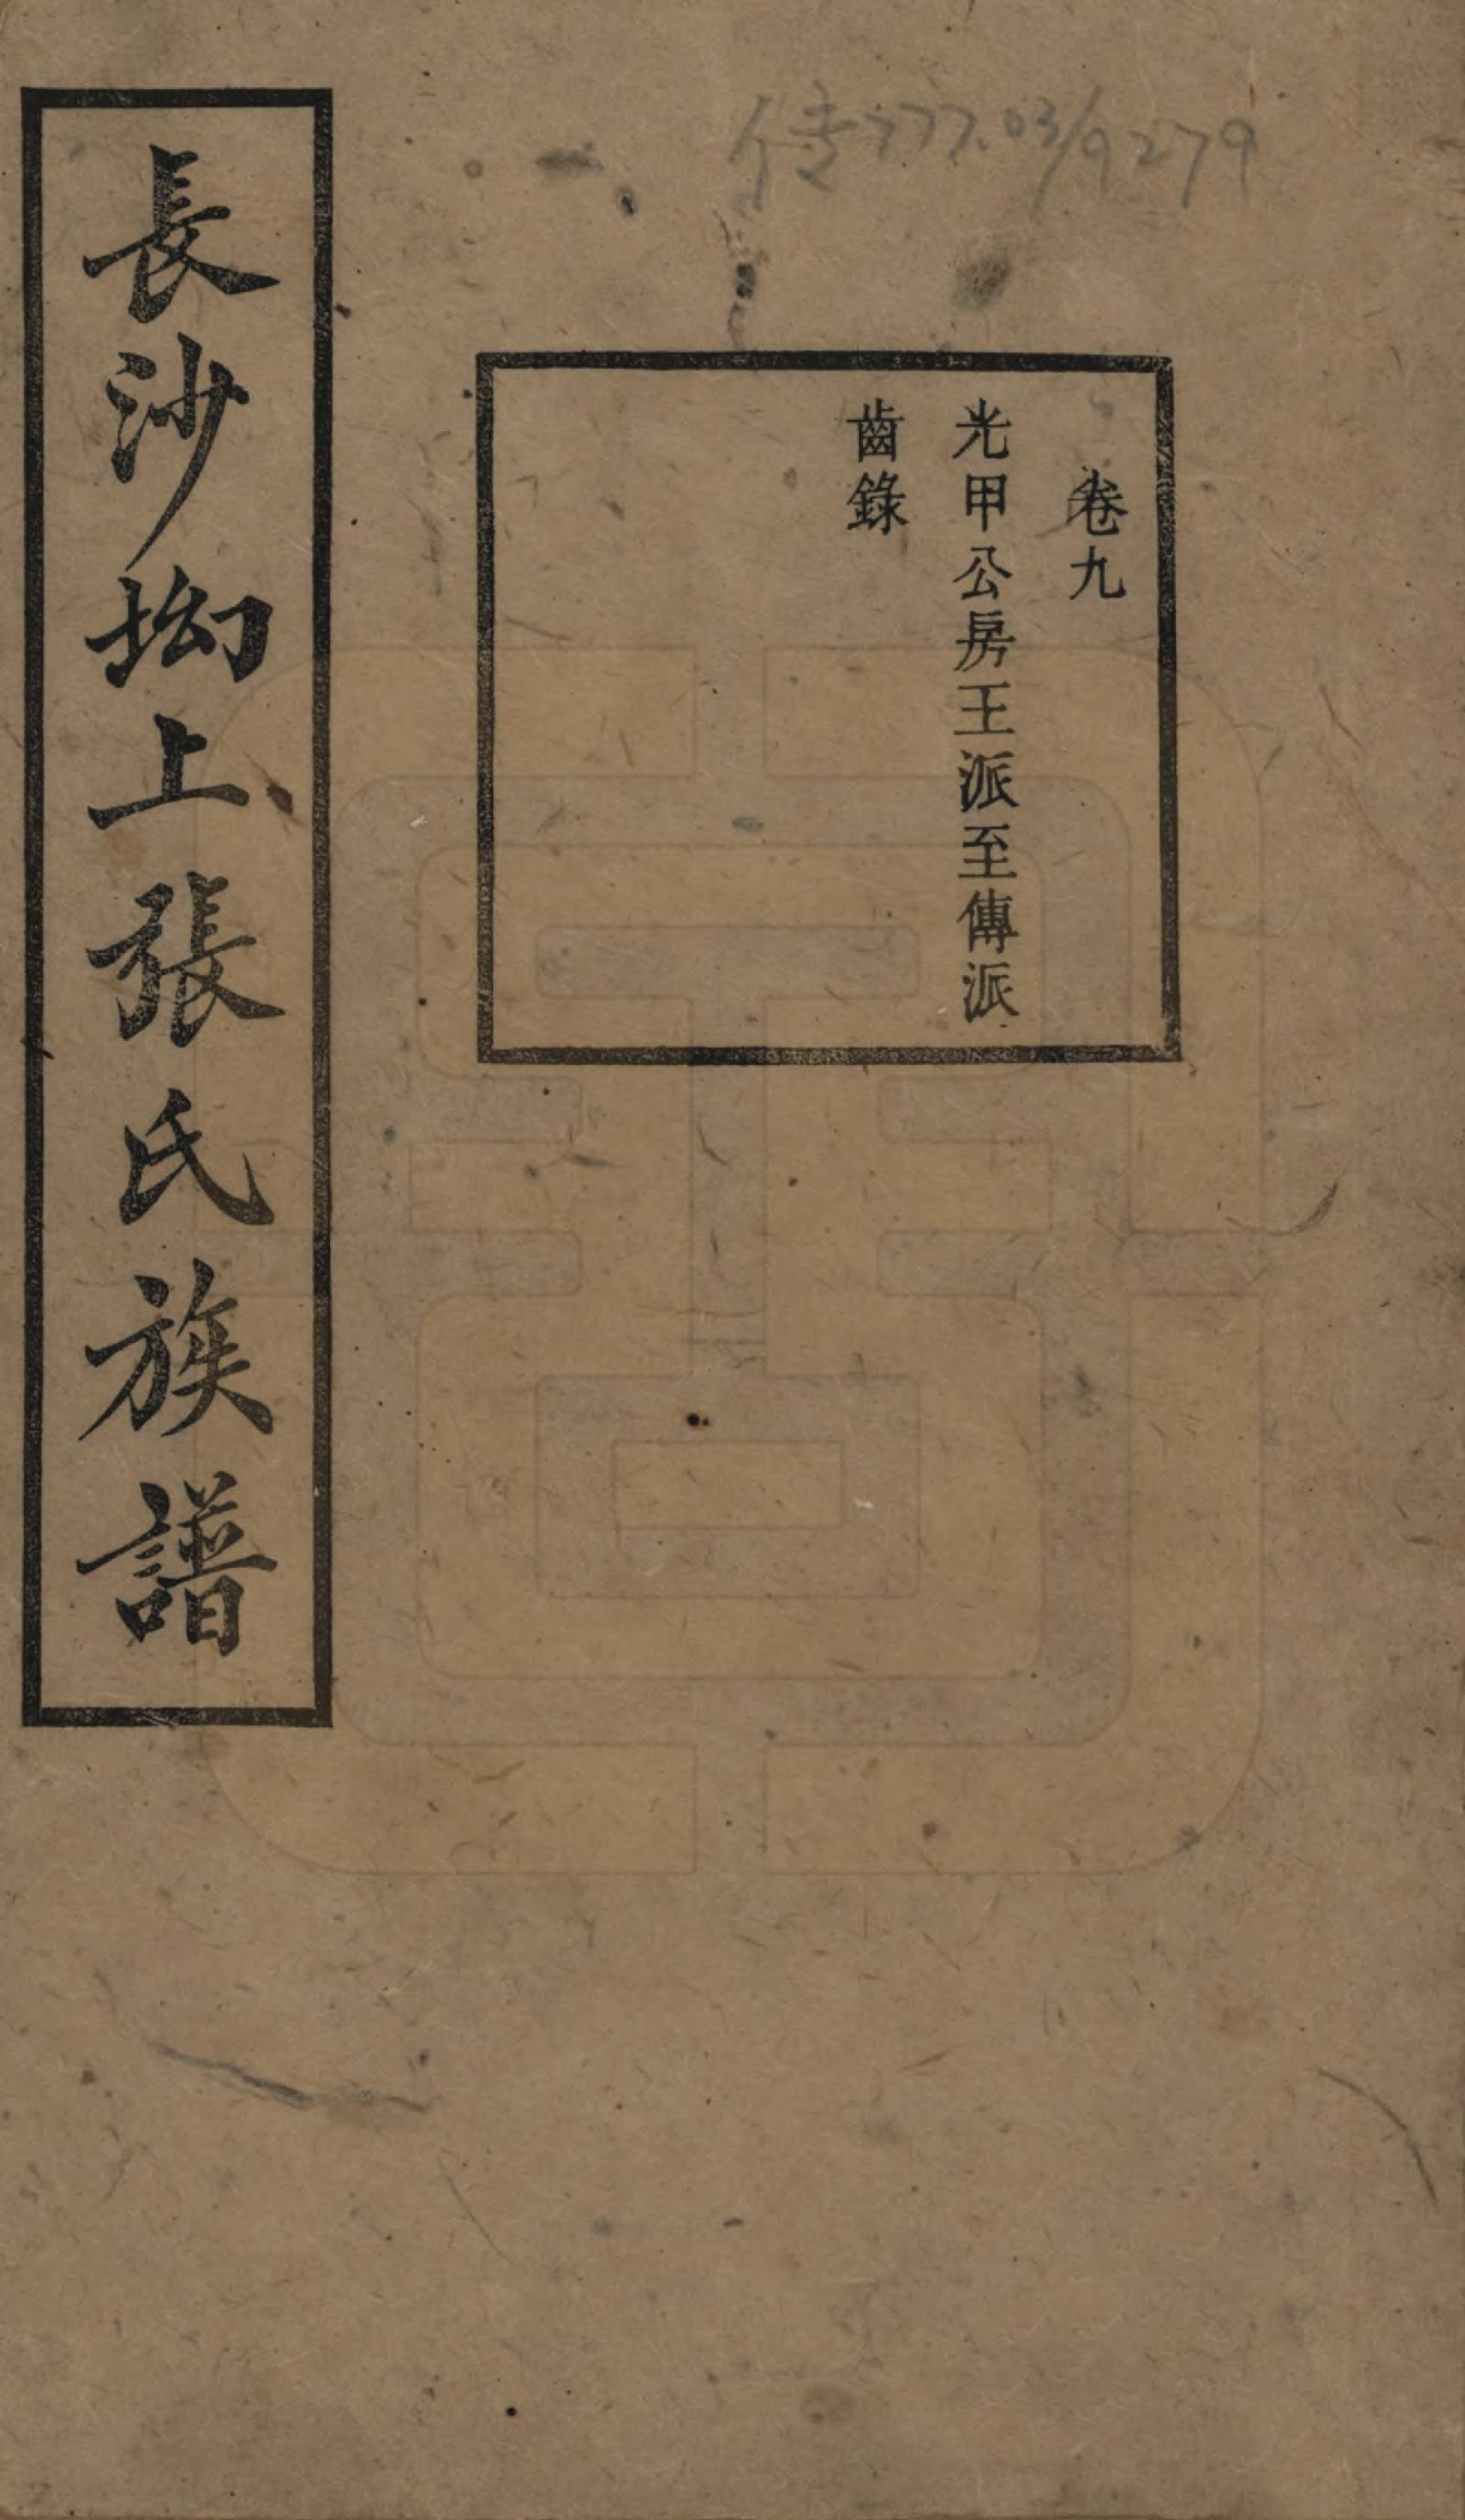 传777.03/9279
卷九
光甲公房王派至傳派
齒錄
長沙㘭上張氏族譜